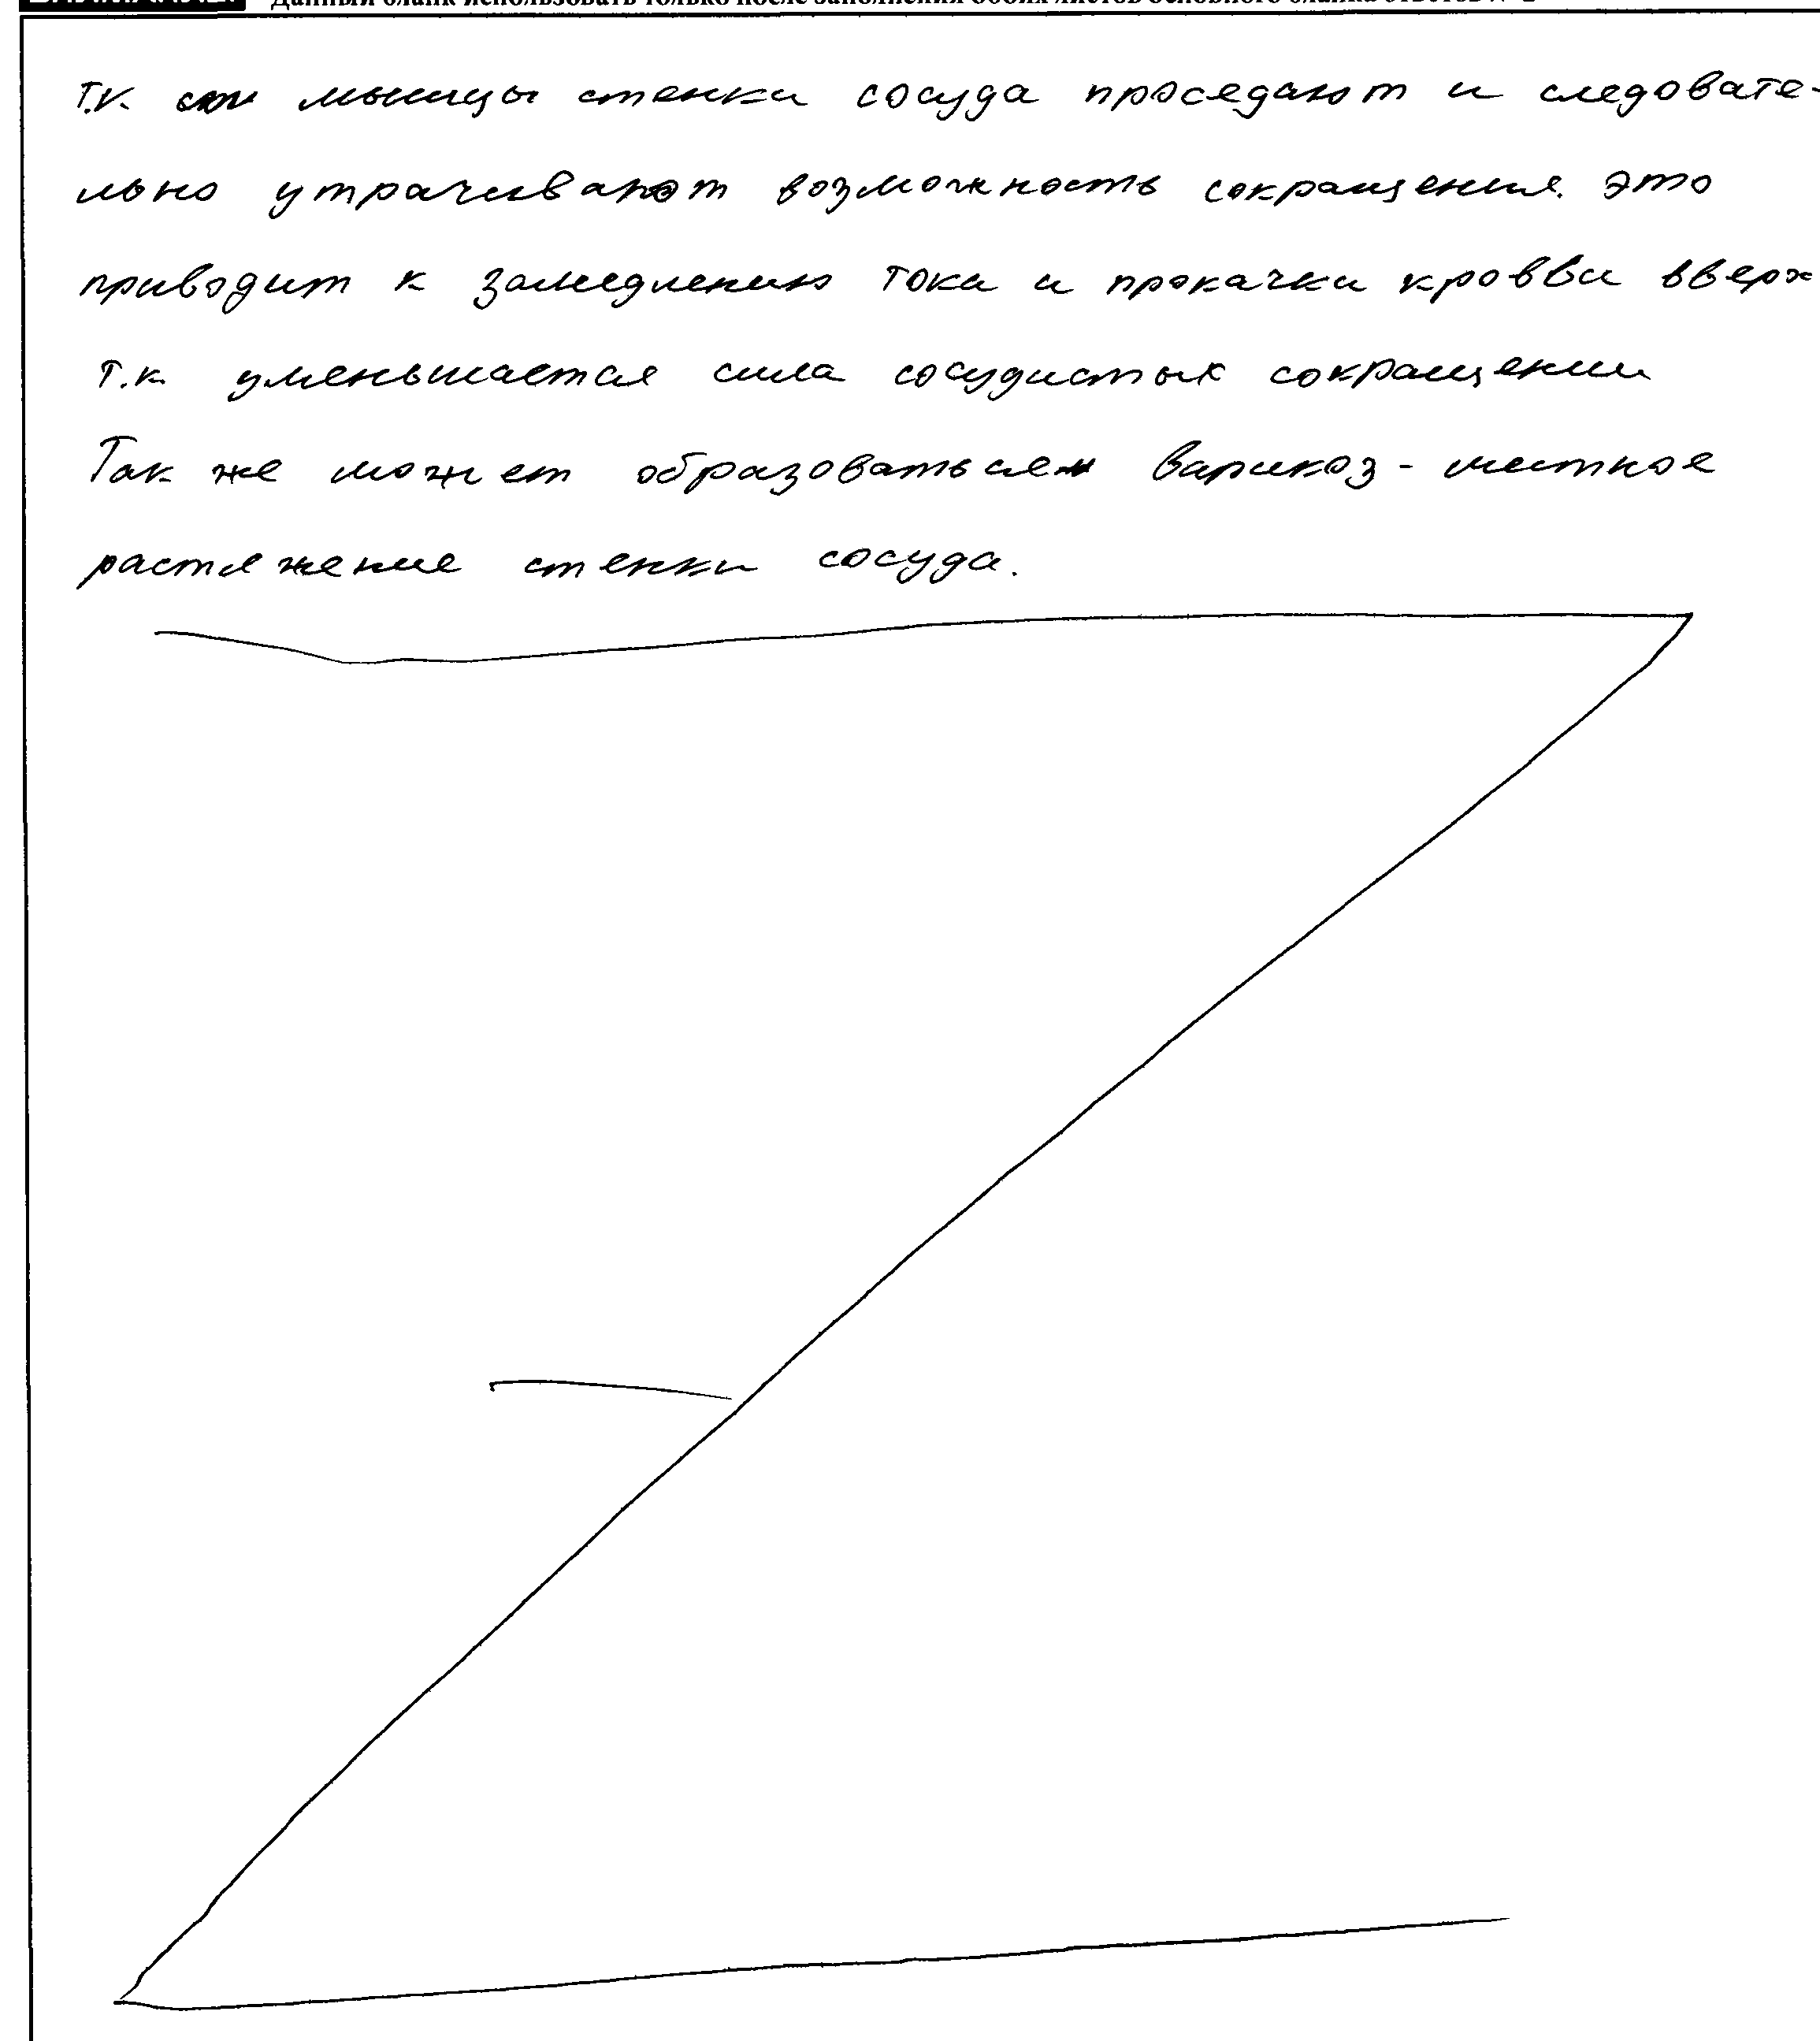 Данный бланк использовать только после заполнения обоих листов основного бланка ответов № 2
т.к. мышцы стенки сосуда проседают и следовате-
льно утрачивают возможность сокращения. это
приводит к замедлению тока и прокачки кровви вверх
т.к. уменьшается сила сосудистых сокращении
Так же может образоваться варикоз - местное
растяжение стенки сосуда.